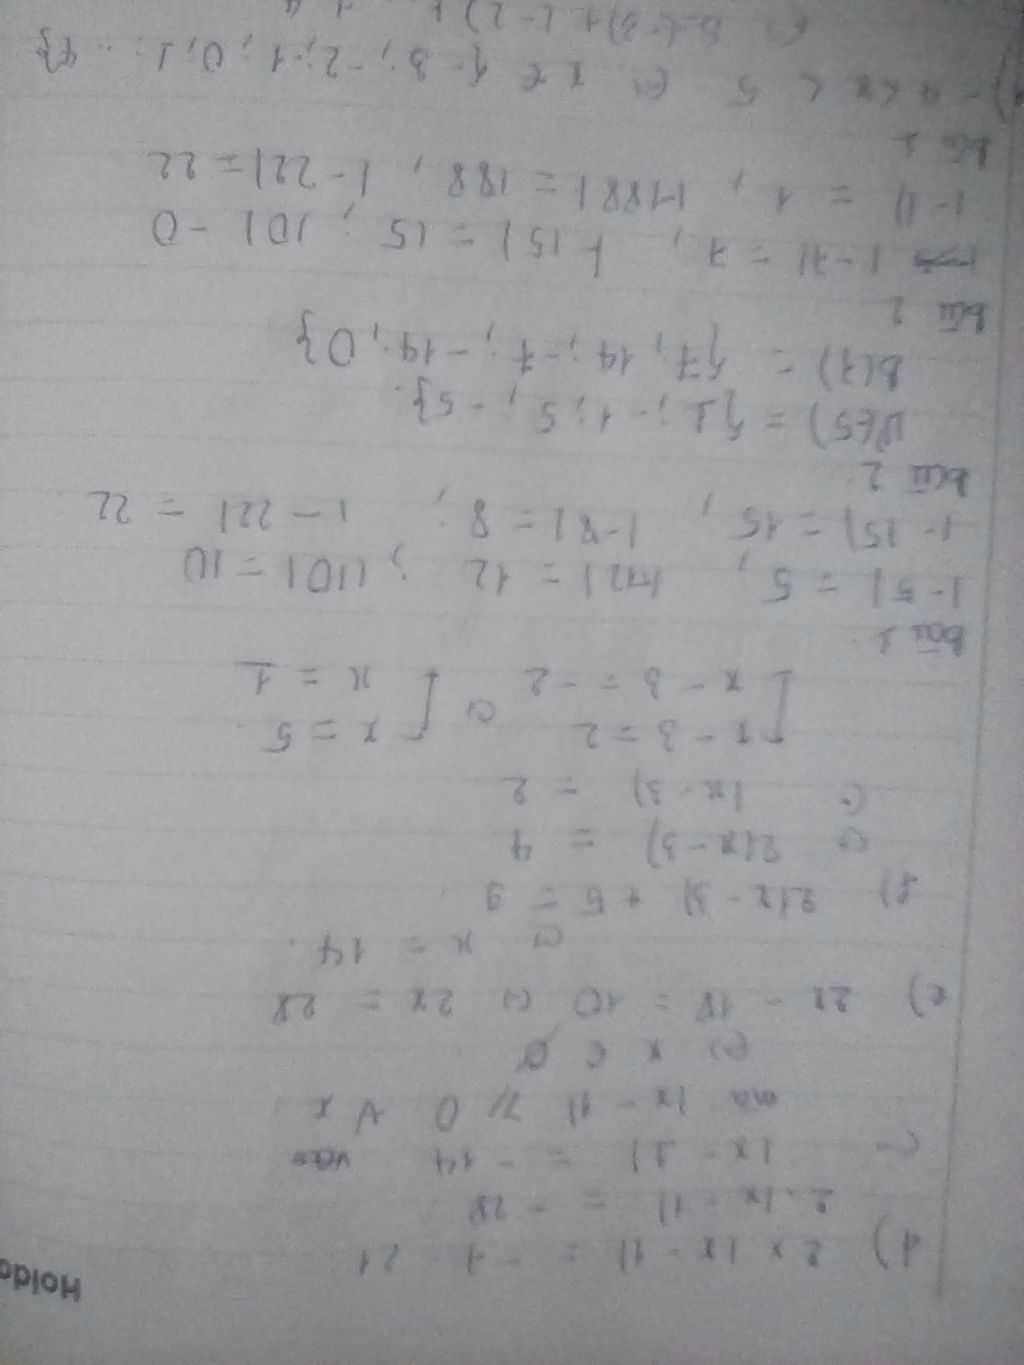 d) 2 x |x - 1| = - 7 - 21
2. |x - 1| = - 28
|x - 1| = - 14
mà |x - 1| ≥ 0 ∀ x
x ∈ Ø
e) 2x - 18 = 10 ⇔ 2x = 28
⇔ x = 14.
f) 2|x - 3| + 5 = 9
⇔ 2|x - 3| = 4
|x - 3| = 2
[x - 3 = 2 ⇔ [x = 5.
[x - 3 = -2 [x = 1
bài 1.
|-5| = 5, |12| = 12; |10| = 10
|-15| = 15, |-8| = 8; |-22| = 22
bài 2.
= {1; -1; 5; -5}.
B(7) = {7; 14; -7; -14; 0}
bài 2
|-7| = 7, |15| = 15; |0| = 0
|-1| = 1, |188| = 188, |-22| = 22
bài 1
- 4 < x < 5 ⇔ x ∈ {-3; -2; -1; 0; 1; .. 4}